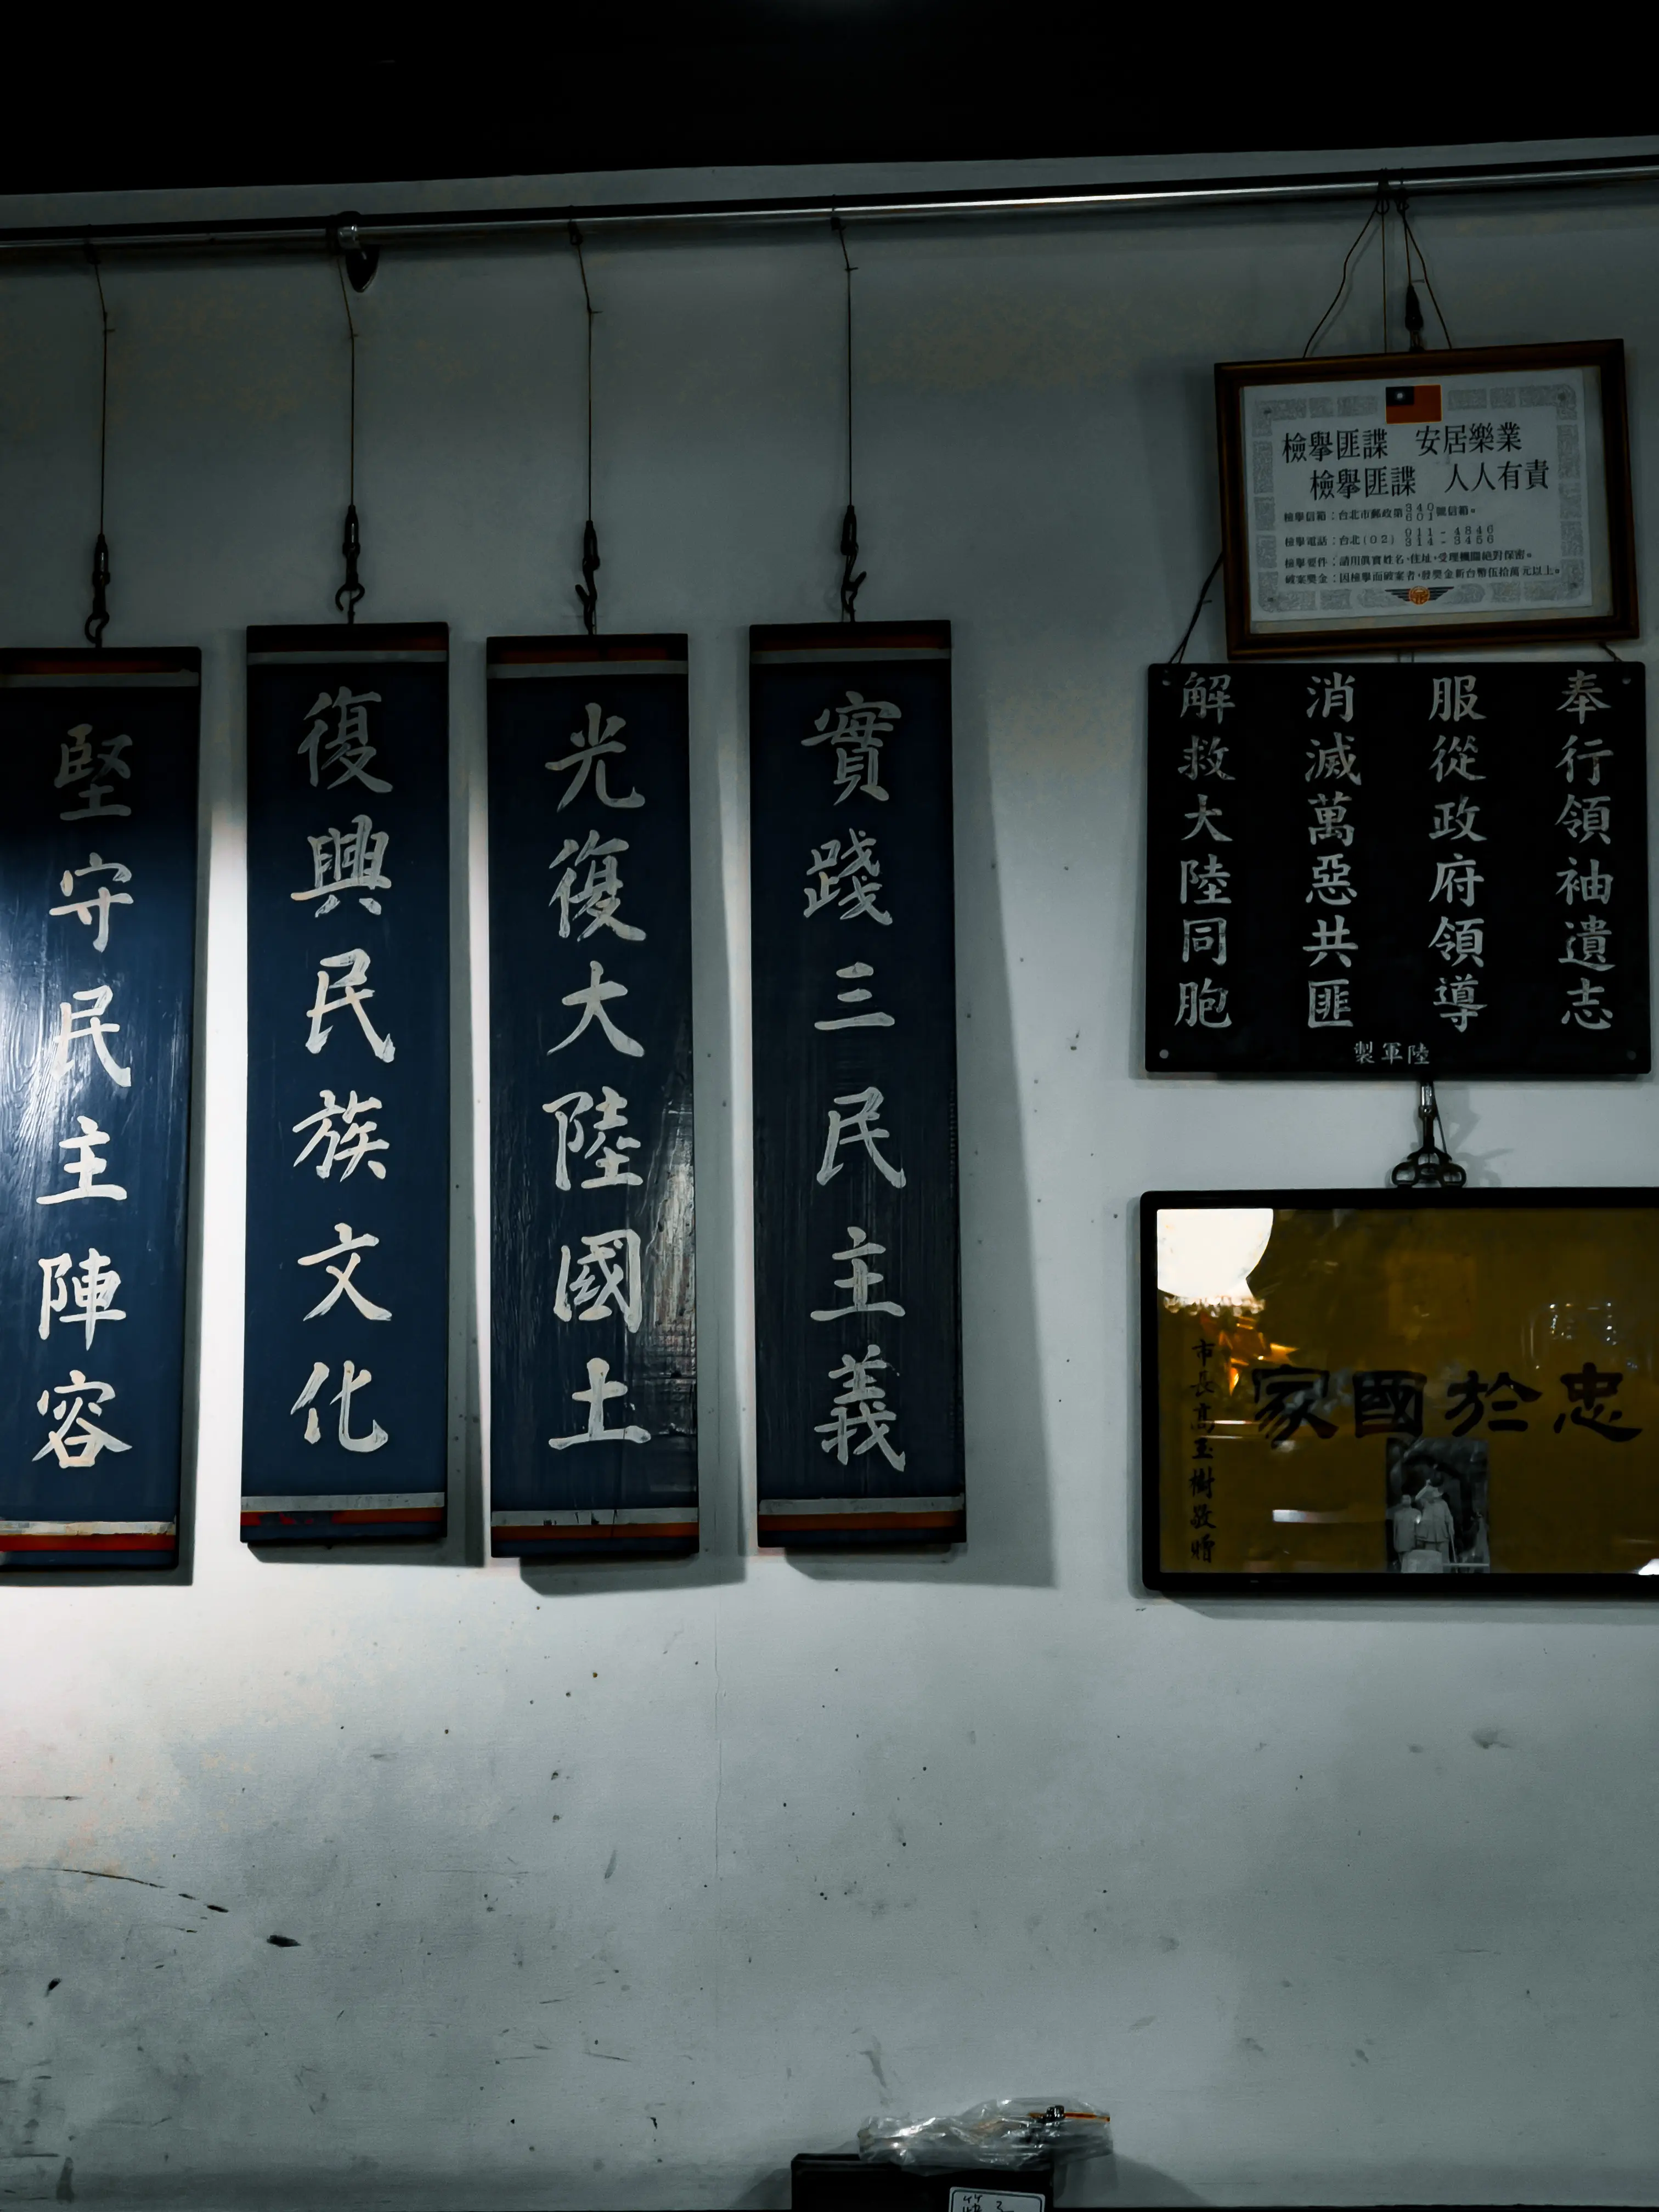 實踐三民主義
光復大陸國土
復興民族文化
堅守民主陣容
檢舉匪諜 安居樂業
檢舉匪諜 人人有責
檢舉信箱:台北市郵政第340 601號信箱。
檢舉電話:台北(02)011-4846 314-3456
檢舉要件:請用眞實姓名、住址,受理機關絕對保密。
破案獎金:因檢舉而破案者,發獎金新台幣伍拾萬元以上。
奉行領袖遺志
服從政府領導
消滅萬惡共匪
解救大陸同胞
陸軍製
忠於國家
市長高玉樹敬贈